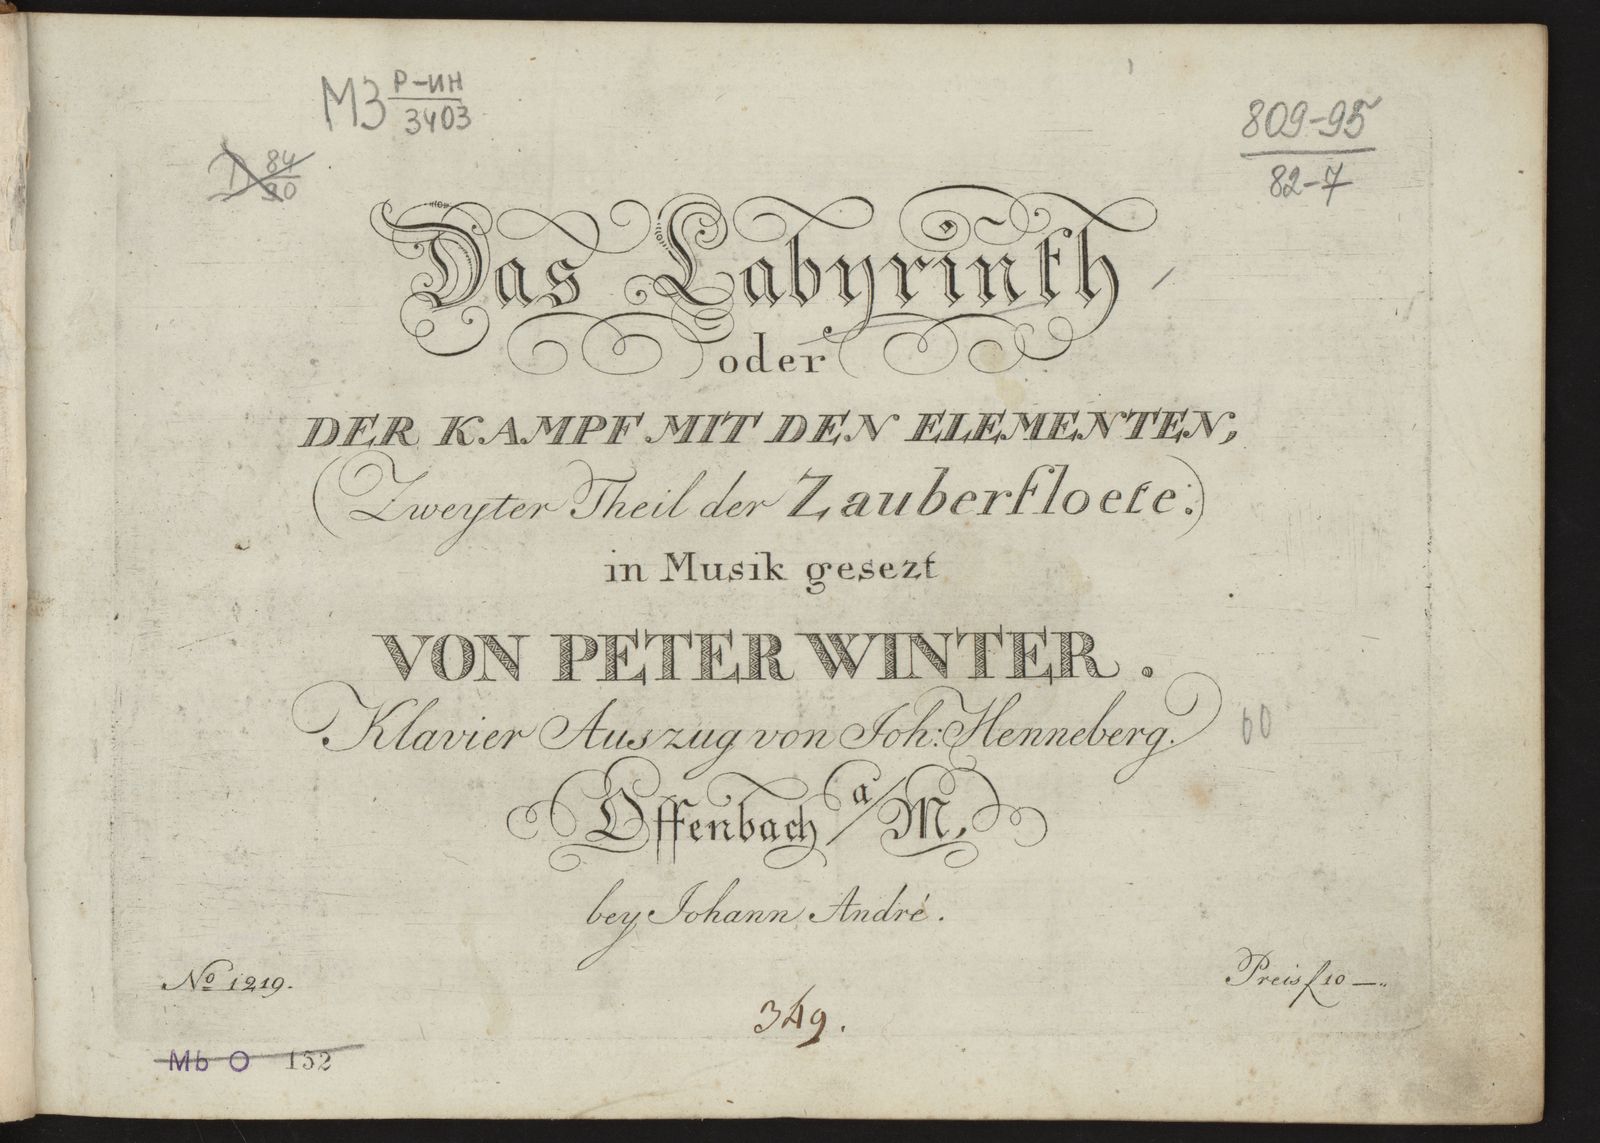 МЗ Р-ИН
3403
84
809-95
82-7
Das Labyrinth
oder
DER KAMPF MIT DEN ELEMENTEN,
(Zweyter Theil der Zauberfloete:)
in Musik gesezt
VON PETER WINTER.
Klavier Auszug von Joh: Henneberg.
60
Offenbach a/M,
bey Johann André.
No 1219.
Preis f 10 —
349.
Mb O 152